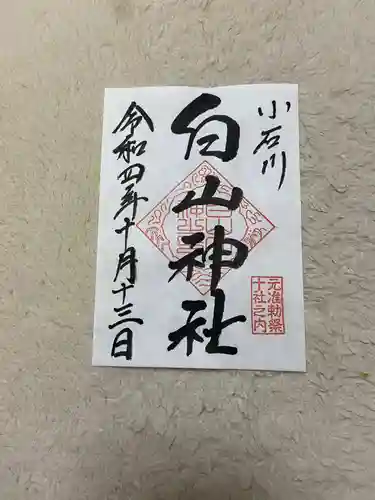 小石川
白山神社
元准勅祭
十社之内
令和四年十月十三日